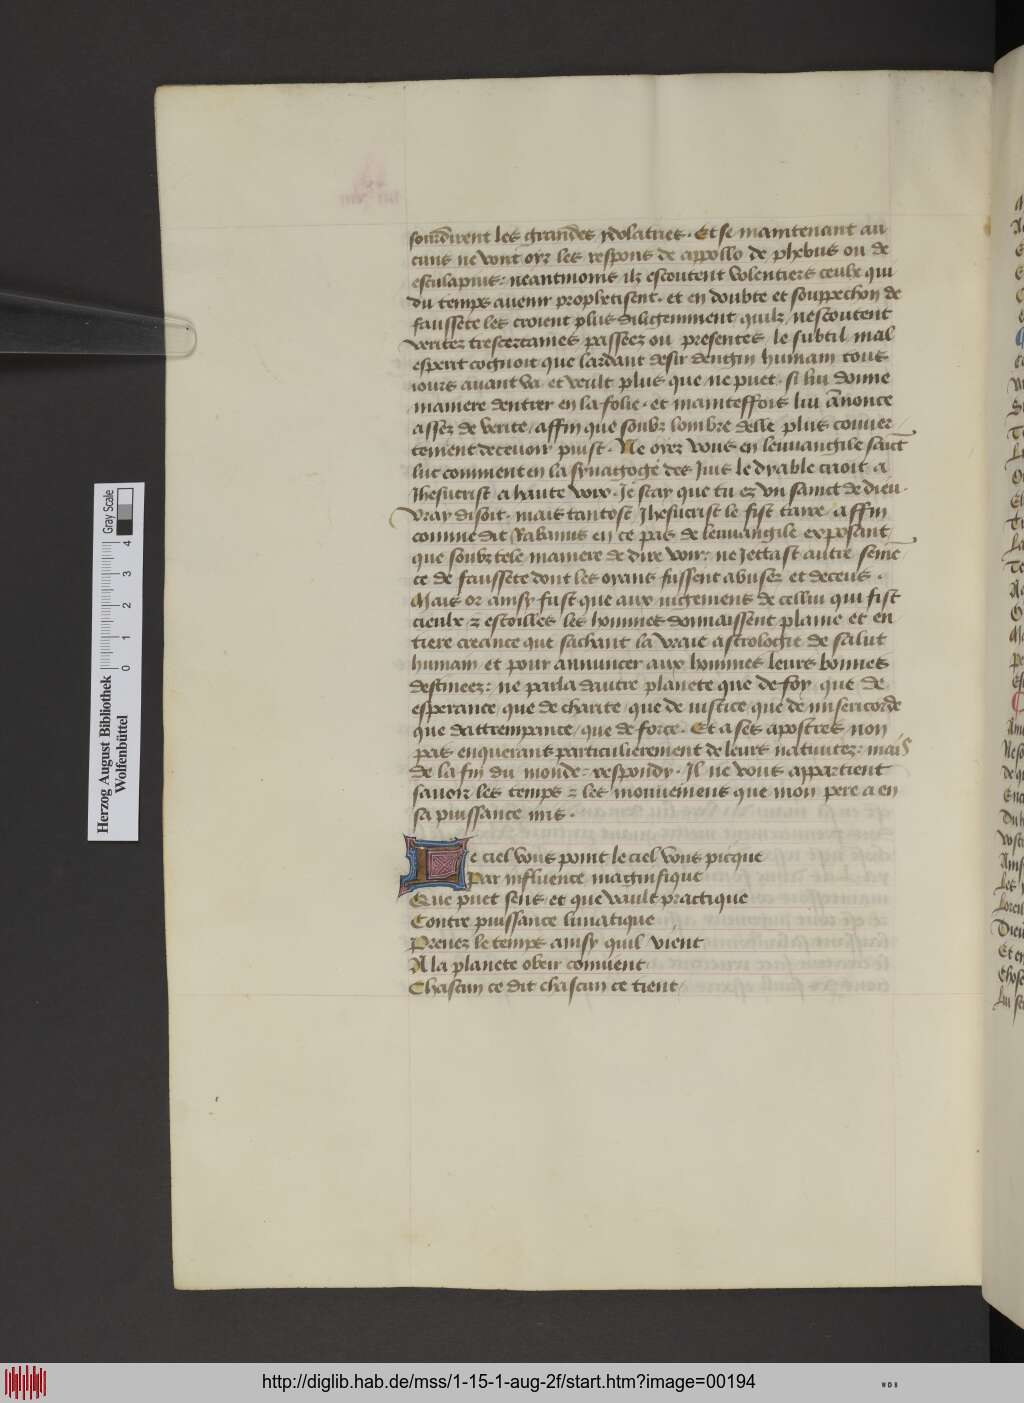 sourdirent les grandes ydolatries. Et se maintenant au
cuns ne vont oyr les respons de appollo de phebus ou de
esculapius: neantmoins ilz escoutent volentiers ceulx qui
du temps auenir prophetisent. et en doubte et souppechon de
faussete les croient plus diligemment quilz nescoutent
veritez trescertaines passeez ou presentes le subtil mal
esperit cognoit que lardant desir dengin humain tous
iours auant va et veult plus que ne puet. si lui donne
maniere dentrer en la folie. et mainteffois lui ānonce
assez de verite / affin que soubz lombre delle plus couuer
tement deceuoir puist. Ne oyez vous en leuuangile saīct
luc comment en la synagoge des Juis le dyable crioit a
Jhesucrist a haute voix. Je scay que tu ez vn sainct de dieu.
vray disoit. mais tantost Jhesucrist le fist taire / affin
comme dit Rabanus en ce pas de leuuangile exposant
que soubz tele maniere de dire voir: ne Jettast autre semē
ce de faussete dont les oyans fussent abusez et deceus.
Mais or ainsy fust que aux iugemens de cellui qui fist
cieulx z estoilles les hommes donnaissent plaine et en
tiere creance que sachant la vraie astrologie de salut
humain et pour annuncer aux hommes leurs bonnes
destineez: ne parla dautre planete que de foy que de
esperance / que de charite / que de iustice / que de misericorde
que dattrempance / que de force. Et a ses apostres non
pas enquerans particulierement de leurs natiuitez: mais
de la fin du monde: respondy. Il ne vous appartient
sauoir les temps z les mouuemens que mon pere a en
sa puissance mis.
Le ciel vous point le ciel vous picque
Par influence maginfique
Que puet sens et que vault practique
Contre puissance lunatique
Prenez le temps ainsy quil vient
A la planete obeir conuient
Chascun ce dit chascun ce tient
Herzog August Bibliothek
Wolfenbüttel
0 1 2 3 4
Gray Scale
http://diglib.hab.de/mss/1-15-1-aug-2f/start.htm?image=00194